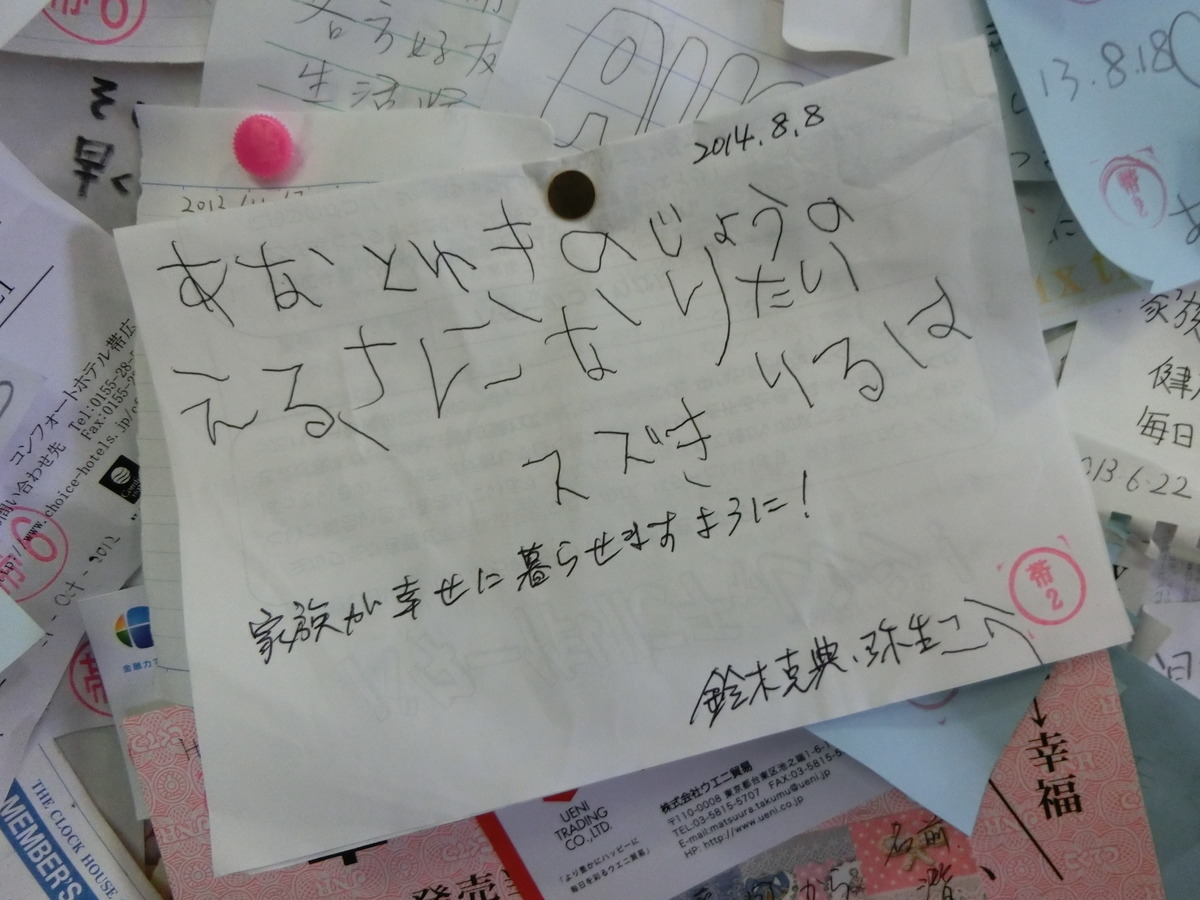 2014.8.8
あなとゆきのじょうの
えるさになりたい
りるは
スズき
家族が幸せに暮らせますように!
鈴木克典、弥生
帯2
2012
各方好友
生活
早く
13.8.18
帯2
健
毎日
013.6.22
コンフォートホテル帯広
Tel:0155-28-
Fax:0155-2
問い合わせ先
http://www.choice-hotels.jp/o
帯6
-Oct-2012
THE CLOCK HOUSE
MEMBER'S
UENI
TRADING
CO.,LTD.
「より豊かにハッピーに
毎日を彩るウエニ貿易」
株式会社ウエニ貿易
〒110-0008 東京都台東区池之端1-6-1
TEL:03-5815-5707 FAX:03-5815-5
E-mail:matsuura.takumu@ueni.jp
HP: http://www.ueni.co.jp
↓幸福
発売
名前
から